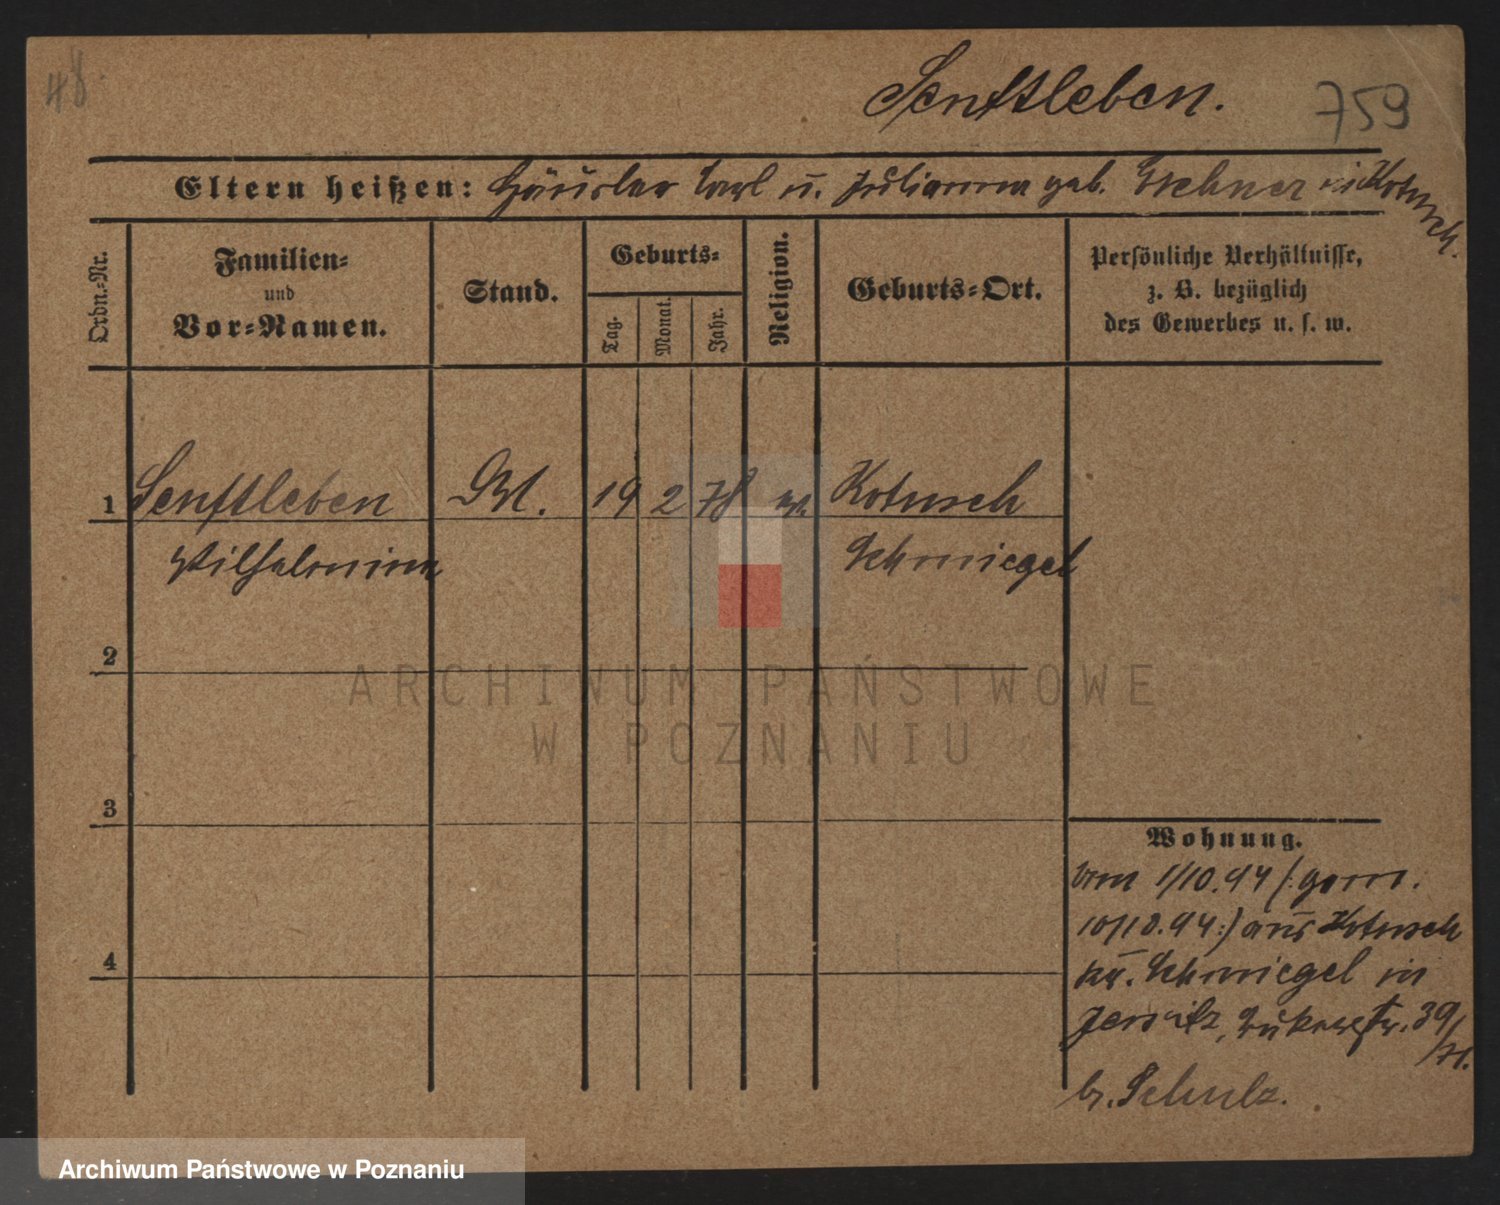 48.
Senftleben.
759
Eltern heißen: Häusler Carl u. Julianna geb. in Kotusch.
Ordn.-Nr.
Familien-
und
Vor-Namen.
Stand.
Geburts-
Tag.
Monat.
Jahr.
Religion.
Geburts-Ort.
Persönliche Verhältnisse,
z. B. bezüglich
des Gewerbes u. s. w.
1 Senftleben 19 2 78 Kotusch
Wilhelmine Schmiegel
2
ARCHIWUM PAŃSTWOWE
W POZNANIU
3
4
Wohnung.
vom 1/10.94 /: gem.
10/10.94 :/ aus Kotusch
Kr. Schmiegel in
Jersitz, 39/
b. Schulz.
Archiwum Państwowe w Poznaniu